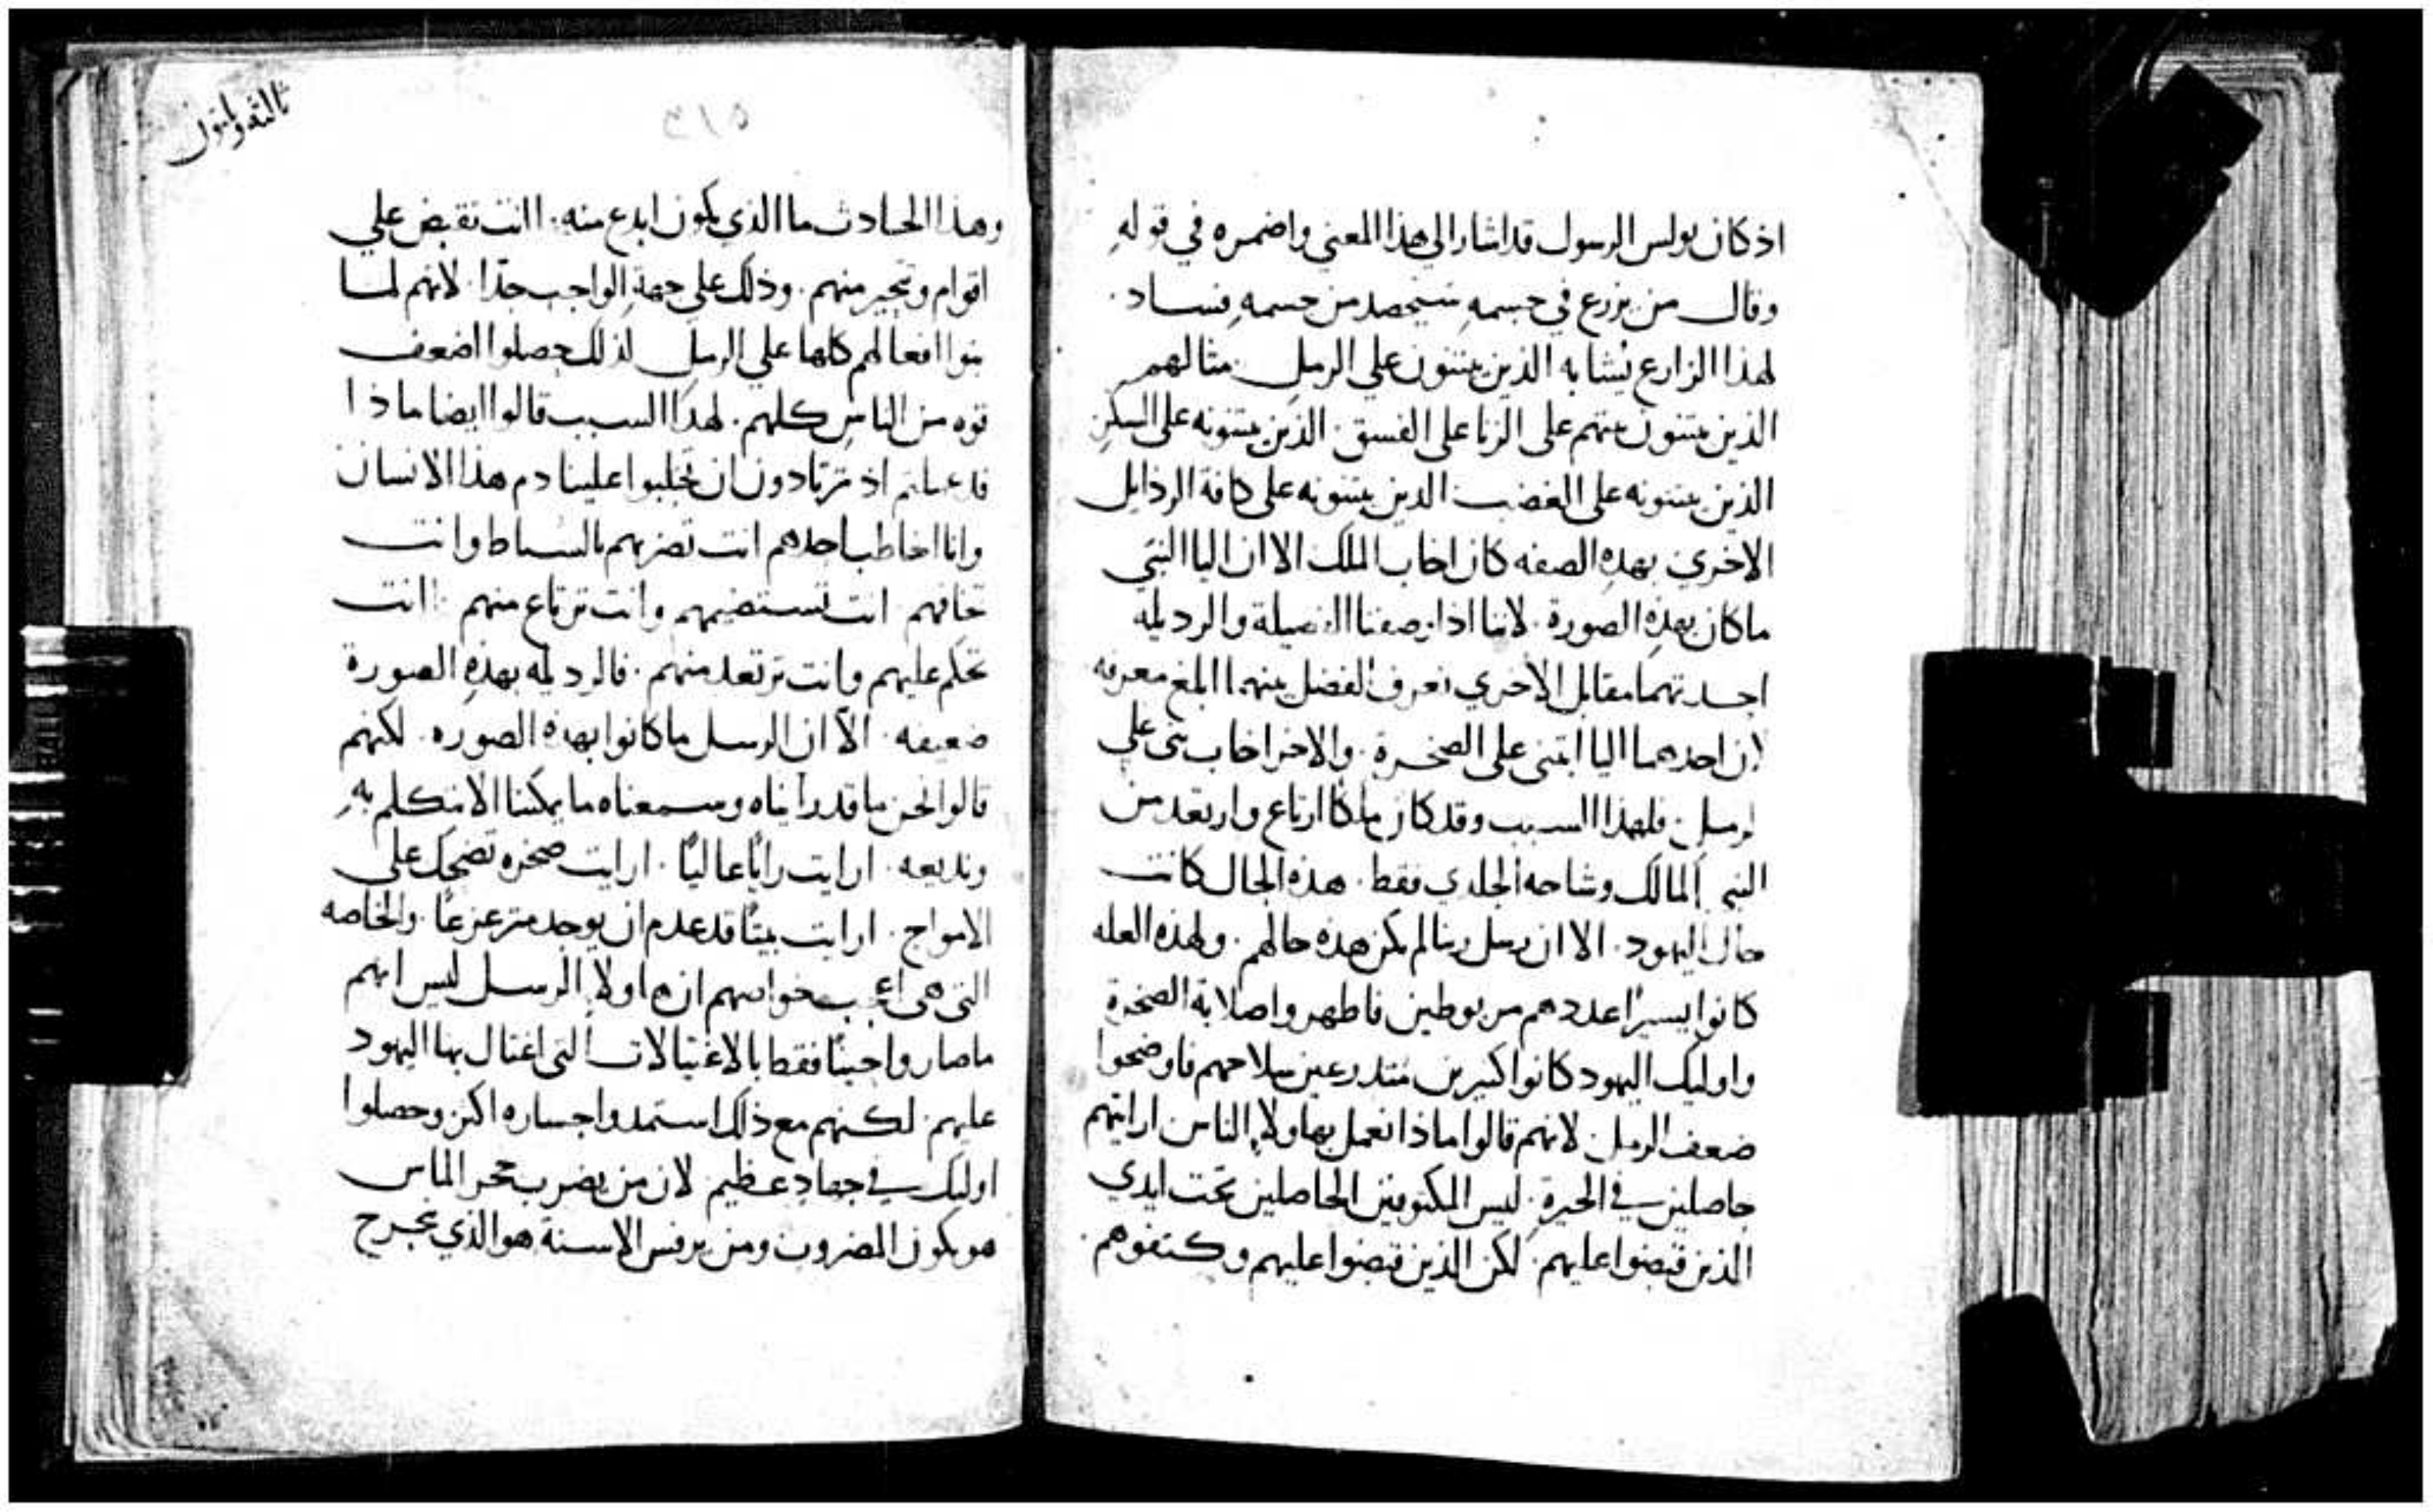 اذ كان بولس الرسول قد اشار الي هذا المعني واضمره في قوله
وقال من يزرع في جسمه سيحصد من جسمه فساد ٠
لهذا الزارع يشابه الذين يبتنون علي الرمل مثالهم
الذين يبتنون بيتهم على الزنا على الفسق ٠ الذين يبتنونه على السكر
الذين يبتنونه على الغضب ٠ الذين يبتنونه على كافة الرذايل
الاخري ٠ بهذه الصفه كان اخاب الملك الا ان اليا النبي
ما كان بهذه الصورة ٠ لاننا اذا وصفنا الفضيلة والرديله
احديهما مقابل الاخري نعرف الفضل بينهما ابلغ معرفه
لان احدهما اليا ابتنى على الصخرة ٠ والاخر اخاب بنى علي
لرمل ٠ فلهذا السبب وقد كان ملكا ارتاع وارتعد من
النبي المالك وشاحه الجلدي فقط ٠ هذه الحال كانت
حال اليهود ٠ الا ان رسل ربنا لم يكن هذه حالهم ٠ ولهذه العله
كانوا يسيرًا عددهم مربوطين فاظهروا صلابة الصخرة
واوليك اليهود كانوا كثيرين متدرعين سلاحهم فاوضحوا
ضعف الرمل ٠ لانهم قالوا ماذا نعمل بهاولاء الناس ارايتهم
حاصلين في الحيرة ٠ ليس المكتوفين الحاصلين تحت ايدي
الذين قبضوا عليهم ٠ لكن الذين قبضوا عليهم وكتفوهم ٠
الثه وثمانون
٣١٥
وهذا الحادث ما الذي يكون ابدع منه ٠ اانت تقبض علي
اقوام وتحير منهم ٠ وذلك علي جهة الواجب جدًا ٠ لانهم لما
بنوا افعالهم كلها علي الرمل لذلك حصلوا اضعف
قوه من الناس كلهم ٠ لهذا السبب قالوا ايضا ماذا
قد عملتم اذ ترتادون ان تجلبوا علينا دم هذا الانسان
وانا اخاطب احدهم انت تضربهم بالسياط وانت
تخافهم انت تستضيمهم وانت ترتاع منهم ٠ اانت
تحكم عليهم وانت ترتعد منهم ٠ فالرديله بهذه الصورة
ضعيفه ٠ الا ان الرسل ما كانوا بهذه الصوره ٠ لكنهم
قالوا نحن ما قد رايناه وسمعناه ما يمكننا الا نتكلم به
ونذيعه ٠ ارايت رايًا عاليًا ٠ ارايت صخره تضحك على
الامواج ٠ ارايت بيتًا قد عدم ان يوجد متزعزعًا ٠ والخاصه
التي هي اعجب خواصهم ان هاولاء الرسل ليس انهم
ما صاروا جبنًا فقط بالاغتيالات التي اغتال بها اليهود
عليهم ٠ لكنهم مع ذلك استمدوا جساره اكثر وحصلوا
اوليك في جهاد عظيم لان من يضرب حجر الماس
هو يكون المضروب ومن يرفس الاسنة هو الذي يجرح